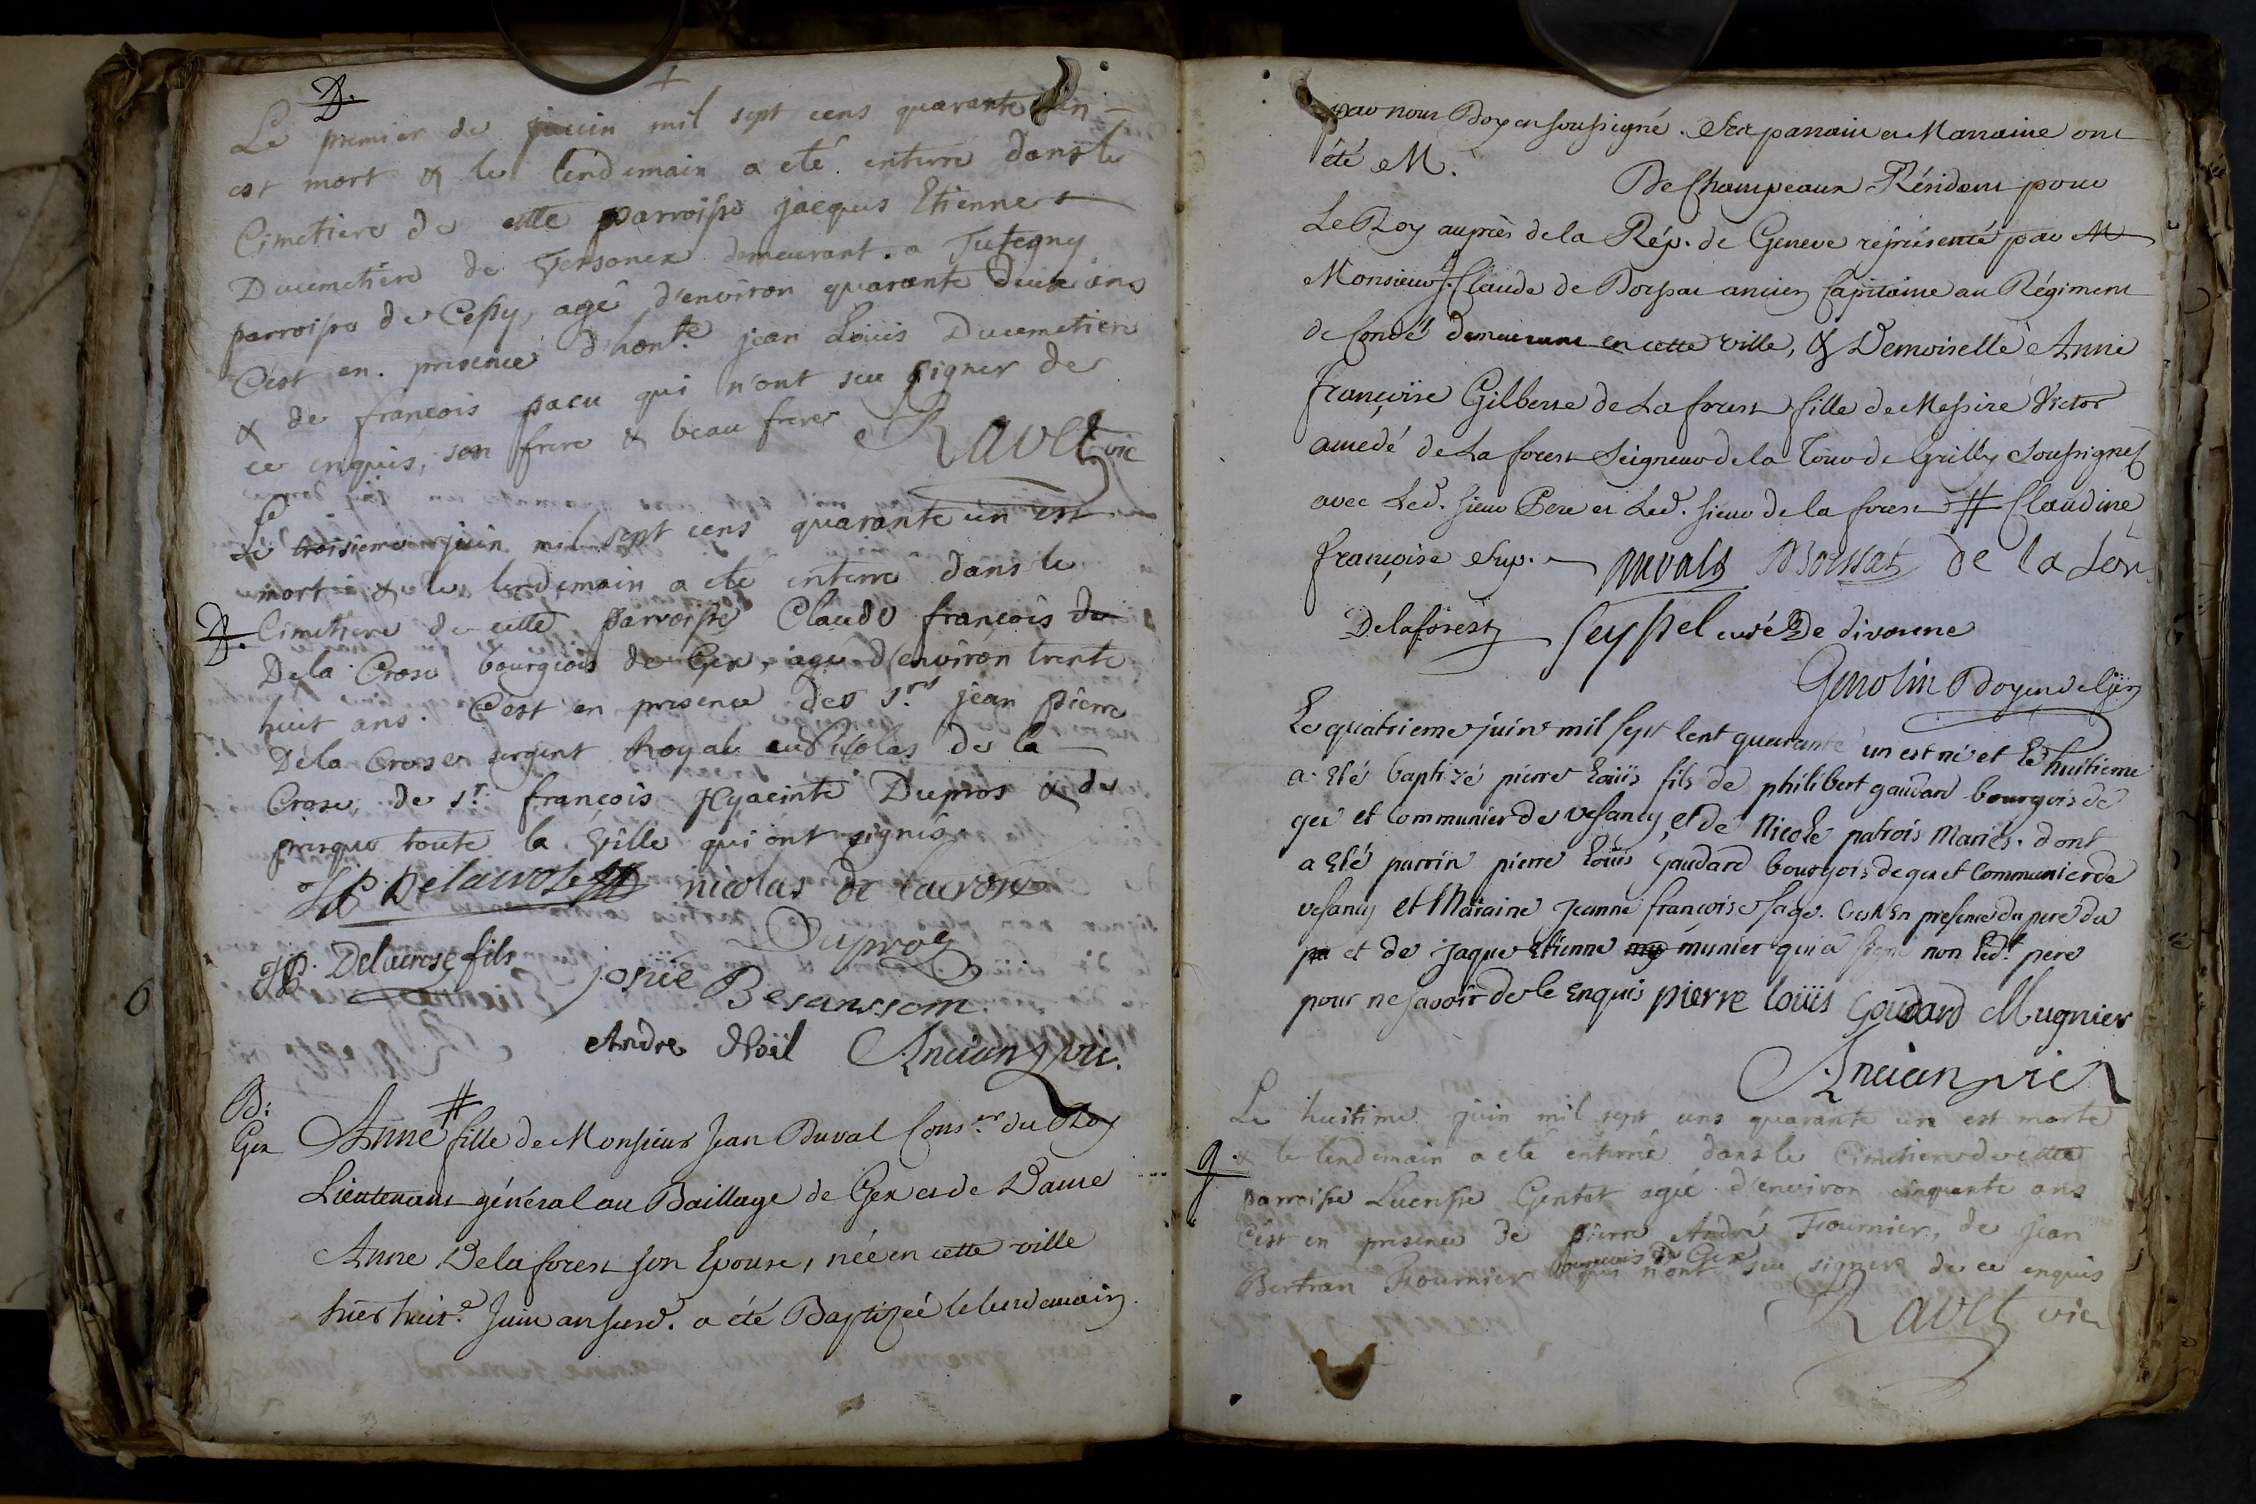 D.
Le premier de juin mil sept cens quarante un
est mort & le lendemain a eté enterré dans le
Cimetiere de cette parroisse jacques Etienne
Ducimetiere de Versonex demeurant a Tutegny
parroisse de Cessy, agé d'environ quarante deux ans
C'est en presence d'hon.te jean Loüis Ducimetiere
& de francois pacu qui n'ont sceu signer de
ce enquis, son frere & beau frere Ravet vic
Le troisieme juin mil sept cens quarante un est
mort & le lendemain a eté enterré dans le
D. Cimetiere de cette parroisse Claude françois de
De la Crose bourgeois de Gex, agé d'environ trente
huit ans. C'est en presence des s.rs jean pierre
De la Crose sergent Royal Nicolas de la
Crose, de s.r françois Hyacinte Dupros & de
presque toute la Ville qui ont signés
JP Delacrose nicolas de lacrose
Duproz
JP. Delacrose fils josué Besanssom.
Andre Noïl Ancian vic.
B:
Gex
Anne # fille de Monsieur Jean Duval Cons.er du Roy
Lieutenant général au Baillage de Gex et de Dame
Anne Delaforest son Epouse, née en cette ville
hier huit.e Juin an susd. a été Baptizée le lendemain
par nous Doyen soussigné. Ses parrain et Marraine ont
été M. De Champeaux Résident pour
Le Roy auprès de la Rép. de Geneve réprésenté par M
Monsieur J. Claude de Boissat ancien Capitaine au Régiment
de Condé demeurant en cette ville, & Demoiselle Anne
françoise Gilberte de La forest fille de Messire Victor
amedé de La forest Seigneur de la Tour de Grilly soussignés
avec Led. sieur Pere et Led. sieur de la forest # Claudine
françoise Sup. Duvals Boissat De la for
Delaforest Seyssel curé De divonne
Genolin Doyen de Gex
Le quatrieme juin mil sept cent quarante un est né et le huitieme
a été baptizé pierre Loüis fils de philibert gaudard bourgois de
gex et communier de vesancy, et de Nicole patrois Mariés. dont
a été parrin pierre Loüis Gaudard bourgois de gex et Communier de
vesancy et Maraine Jeanne françoise sage. C'est En presence du pere du
pa et de jaque Etienne my munier qui a signé non led.t pere
pour ne savoir de le enquis pierre Loüis Goudard Mugnier
Ancian vic
Le huitieme juin mil sept cens quarante un est morte
& le lendemain a eté enterrée dans le Cimetiere de cette
parroisse Lucresse Gentet agée d'environ cinquante ans
C'est en presence de pierre André Fournier, de jean
Bertran Fournier bourgeois de Gex qui n'ont sceu signer de ce enquis
Ravet vic